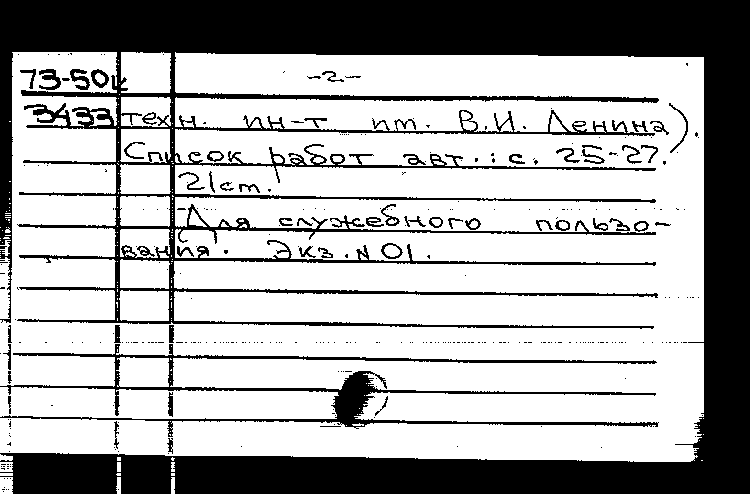 73-50к -2-
3433 техн. ин-т им. В.И. Ленина).
Список работ авт.: с. 25-27.
21 ст.
"Для служебного пользо-
вания". Экз. N 01.